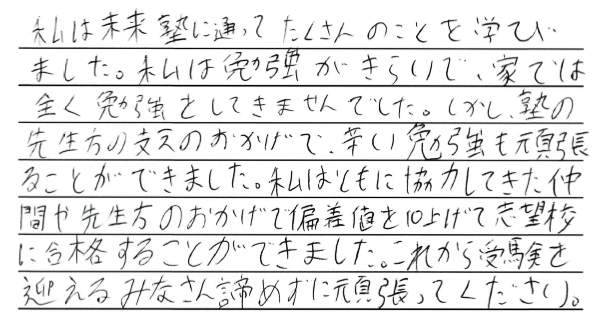 私は未来塾に通ってたくさんのことを学び
ました。私は勉強がきらいで、家では
全く勉強をしてきませんでした。しかし、塾の
先生方の支えのおかげで、辛い勉強も頑張
ることができました。私はともに協力してきた仲
間や先生方のおかげで偏差値を10上げて志望校
に合格することができました。これから受験を
迎えるみなさん諦めずに頑張ってください。